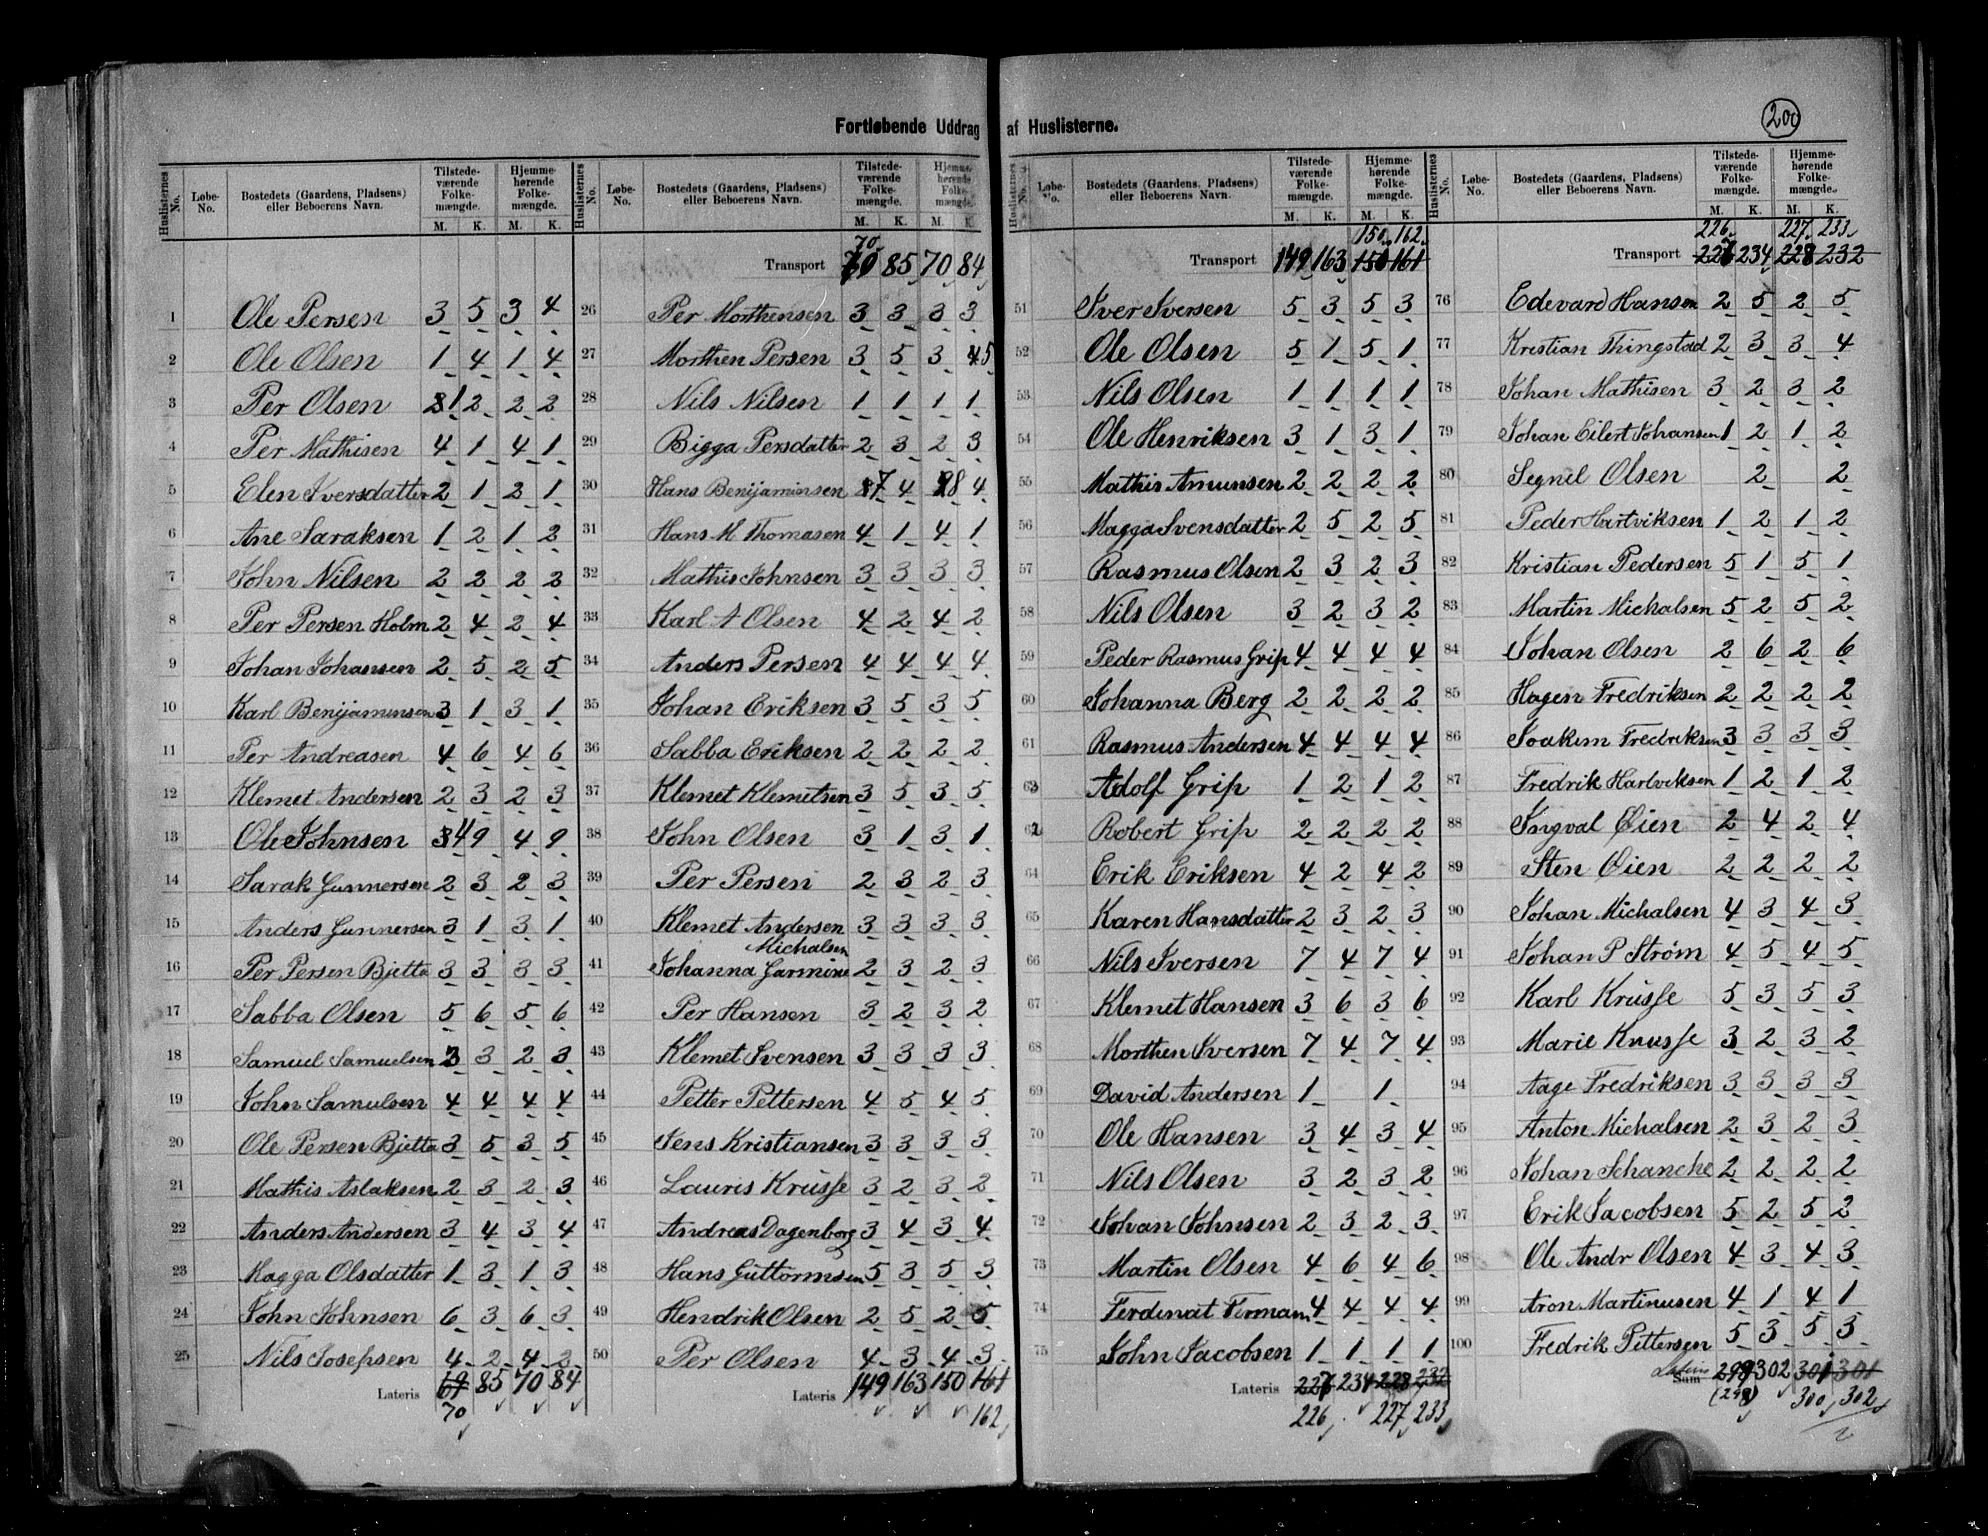 Fortløbende Uddrag af Huslisterne.
200
Huslisternes No. Løbe-No. Bostedets (Gaardens, Pladsens) eller Beboerens Navn. Tilstedeværende Folkemængde. M. K. Hjemmehørende Folkemængde. M. K.
1 Ole Persen 3 5 3 4
2 Ole Olsen 1 4 1 4
3 Per Olsen 1 2 2 2
4 Per Mathisen 4 1 4 1
5 Elen Iversdatter 2 1 2 1
6 Ane Saraksen 1 2 1 2
7 John Nilsen 2 2 2 2
8 Per Persen Holm 2 4 2 4
9 Johan Johansen 2 5 2 5
10 Karl Benijaminsen 3 1 3 1
11 Per Andreasen 4 6 4 6
12 Klemet Andersen 2 3 2 3
13 Ole Johnsen 4 9 4 9
14 Sarak Gunnersen 2 3 2 3
15 Anders Gunnersen 3 1 3 1
16 Per Persen Bjetta 3 3 3 3
17 Sabba Olsen 5 6 5 6
18 Samuel Samuelsen 3 2 3
19 John Samulsen 4 4 4 4
20 Ole Persen Bjetta 3 5 3 5
21 Mathis Aslaksen 2 3 2 3
22 Anders Andersen 3 4 3 4
23 Magga Olsdatter 1 3 1 3
24 John Johnsen 6 3 6 3
25 Nils Josefsen 4 2 4 2
Lateris 69 85 70 84
70
Huslisternes No. Løbe-No. Bostedets (Gaardens, Pladsens) eller Beboerens Navn. Tilstedeværende Folkemængde. M. K. Hjemmehørende Folkemængde. M. K.
70
Transport 70 85 70 84
26 Per Morthensen 3 3 3 3
27 Morthen Persen 3 5 3 4 5
28 Nils Nilsen 1 1 1 1
29 Bigga Persdatter 2 3 2 3
30 Hans Benijaminsen 7 4 8 4
31 Hans M Thomasen 4 1 4 1
32 Mathis Johnsen 3 3 3 3
33 Karl A Olsen 4 2 4 2
34 Anders Persen 4 4 4 4
35 Johan Eriksen 3 5 3 5
36 Sabba Eriksen 2 2 2 2
37 Klemet Klemitsen 3 5 3 5
38 John Olsen 3 1 3 1
39 Per Persen 2 3 2 3
40 Klemet Andersen 3 3 3 3
Michalsen
41 Johanna Garmine 2 3 2 3
42 Per Hansen 3 2 3 2
43 Klemet Svensen 3 3 3 3
44 Petter Pettersen 4 5 4 5
45 Jens Kristiansen 3 3 3 3
46 Lauris Krusse 3 2 3 2
47 Andreas Dagenborg 3 4 3 4
48 Hans Guttormsen 5 3 5 3
49 Hendrik Olsen 2 5 2 5
50 Per Olsen 4 3 4 3
Lateris 149 163 150 161
162
Huslisternes No. Løbe-No. Bostedets (Gaardens, Pladsens) eller Beboerens Navn. Tilstedeværende Folkemængde. M. K. Hjemmehørende Folkemængde. M. K.
150 162
Transport 149 163 150 161
51 Iver Iversen 5 3 5 3
52 Ole Olsen 5 1 5 1
53 Nils Olsen 1 1 1 1
54 Ole Henriksen 3 1 3 1
55 Mathis Amunsen 2 2 2 2
56 Magga Svensdatter 2 5 2 5
57 Rasmus Olsen 2 3 2 3
58 Nils Olsen 3 2 3 2
59 Peder Rasmus Grip 4 4 4 4
60 Johanna Berg 2 2 2 2
61 Rasmus Andersen 4 4 4 4
62 Adolf Grip 1 2 1 2
Robert Grip 2 2 2 2
64 Erik Eriksen 4 2 4 2
65 Karen Hansdatter 2 3 2 3
66 Nils Iversen 7 4 7 4
67 Klemet Hansen 3 6 3 6
68 Morthen Iversen 7 4 7 4
69 David Andersen 1 1
70 Ole Hansen 3 4 3 4
71 Nils Olsen 3 2 3 2
72 Johan Johnsen 2 3 2 3
73 Martin Olsen 4 6 4 6
74 Ferdinat Ferman 4 4 4 4
75 John Jacobsen 1 1 1 1
Lateris 227 234 228 232
226 227 233
Huslisternes No. Løbe-No. Bostedets (Gaardens, Pladsens) eller Beboerens Navn. Tilstedeværende Folkemængde. M. K. Hjemmehørende Folkemængde. M. K.
226 227 233
Transport 227 234 228 232
76 Edevard Hansen 2 5 2 5
77 Kristian Thingstad 2 3 3 4
78 Johan Mathisen 3 2 3 2
79 Johan Eilert Johansen 1 2 1 2
80 Segnil Olsen 2 2
81 Peder Hartviksen 1 2 1 2
82 Kristian Pedersen 5 1 5 1
83 Martin Michalsen 5 2 5 2
84 Johan Olsen 2 6 2 6
85 Hagen Fredriksen 2 2 2 2
86 Joakim Fredriksen 3 3 3 3
87 Fredrik Hartviksen 1 2 1 2
88 Ingval Øien 2 4 2 4
89 Sten Øien 2 2 2 2
90 Johan Michalsen 4 3 4 3
91 Johan P Strøm 4 5 4 5
92 Karl Krusse 5 3 5 3
93 Marie Knusse 3 2 3 2
94 Aage Fredriksen 3 3 3 3
95 Anton Michalsen 2 3 2 3
96 Johan Schancke 2 2 2 2
97 Erik Jacobsen 5 2 5 2
98 Ole Andr Olsen 4 3 4 3
99 Aron Martinusen 4 1 4 1
100 Fredrik Pettersen 5 3 5 3
Lateris Sum 299 302 301 301
(298) 300 302